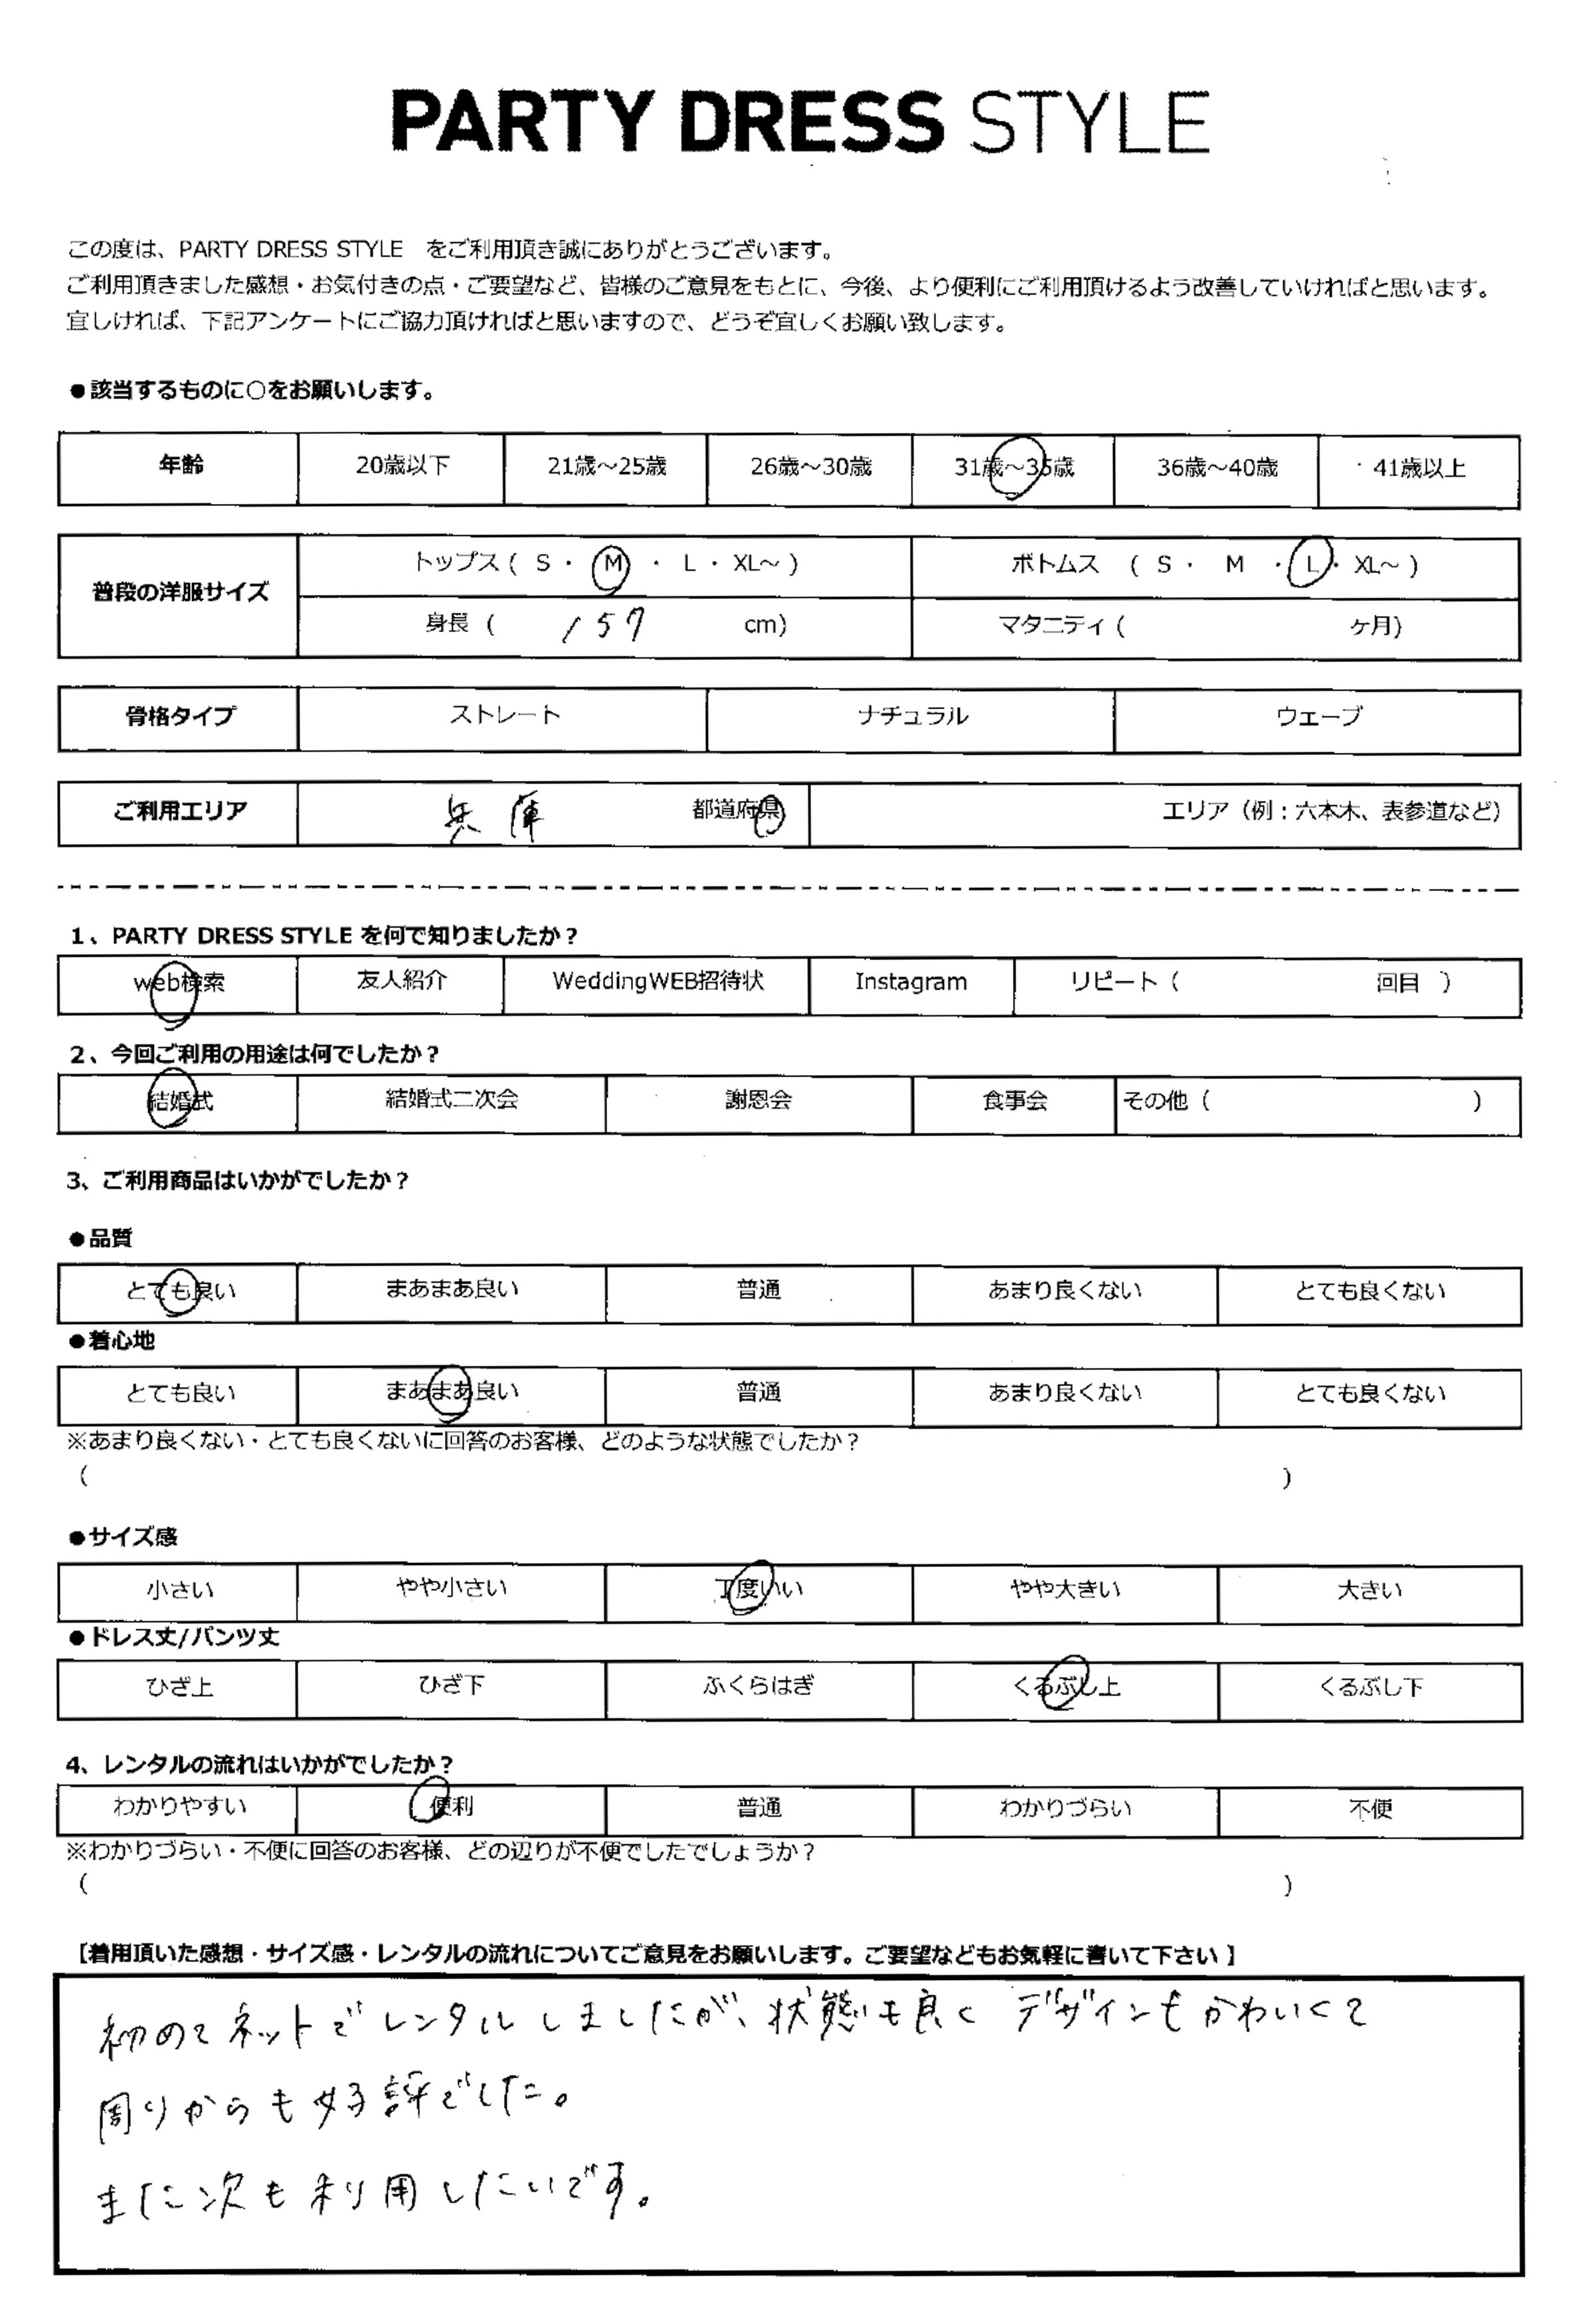 PARTY DRESS STYLE
この度は、PARTY DRESS STYLE をご利用頂き誠にありがとうございます。
ご利用頂きました感想・お気付きの点・ご要望など、皆様のご意見をもとに、今後、より便利にご利用頂けるよう改善していければと思います。
宜しければ、下記アンケートにご協力頂ければと思いますので、どうぞ宜しくお願い致します。
●該当するものに○をお願いします。
年齢 20歳以下 21歳～25歳 26歳～30歳 31歳～35歳 36歳～40歳 41歳以上
普段の洋服サイズ
トップス ( S ・ M ・ L ・ XL～ ) ボトムス ( S ・ M ・ L ・ XL～ )
身長 ( 157 cm) マタニティ ( ヶ月)
骨格タイプ ストレート ナチュラル ウェーブ
ご利用エリア 兵庫 都道府県 エリア（例：六本木、表参道など）
1、PARTY DRESS STYLE を何で知りましたか？
web検索 友人紹介 WeddingWEB招待状 Instagram リピート（ 回目 ）
2、今回ご利用の用途は何でしたか？
結婚式 結婚式二次会 謝恩会 食事会 その他（ ）
3、ご利用商品はいかがでしたか？
●品質
とても良い まあまあ良い 普通 あまり良くない とても良くない
●着心地
とても良い まあまあ良い 普通 あまり良くない とても良くない
※あまり良くない・とても良くないに回答のお客様、どのような状態でしたか？
（ ）
●サイズ感
小さい やや小さい 丁度いい やや大きい 大きい
●ドレス丈/パンツ丈
ひざ上 ひざ下 ふくらはぎ くるぶし上 くるぶし下
4、レンタルの流れはいかがでしたか？
わかりやすい 便利 普通 わかりづらい 不便
※わかりづらい・不便に回答のお客様、どの辺りが不便でしたでしょうか？
（ ）
【着用頂いた感想・サイズ感・レンタルの流れについてご意見をお願いします。ご要望などもお気軽に書いて下さい】
初めてネットでレンタルしましたが、状態も良く デザインもかわいくて
周りからも好評でした。
また次も利用したいです。